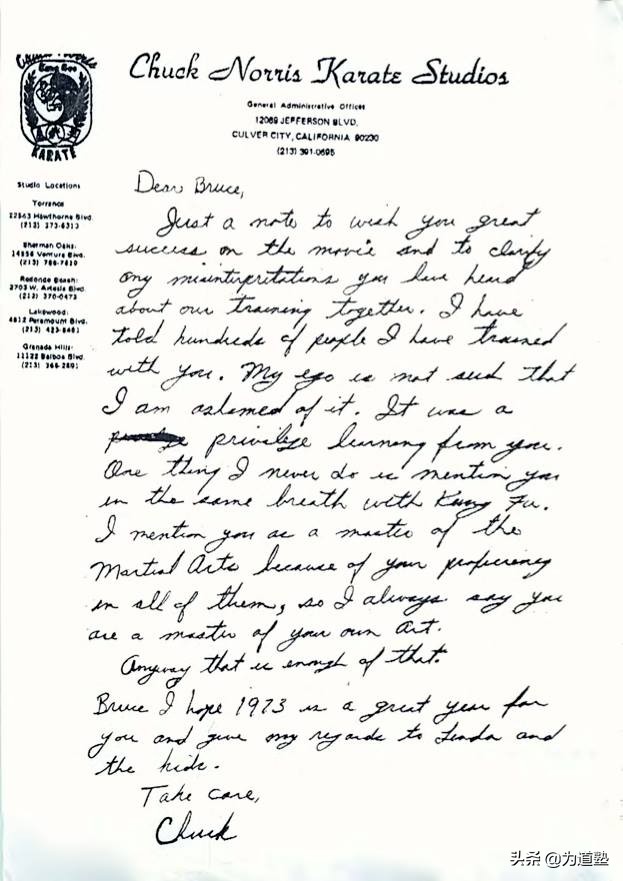 Chuck Norris
KARATE
Chuck Norris Karate Studios
General Administrative Offices
12089 JEFFERSON BLVD.
CULVER CITY, CALIFORNIA 90230
(213) 391-0695
Studio Locations
Torrance
22563 Hawthorne Blvd.
(213) 373-6313
Sherman Oaks:
Ventura Blvd.
Redondo Beach:
2703 W. Artesia Blvd.
(213) 370-0473
Lakewood:
4812 Paramount Blvd.
(213)
Granada Hills:
11122 Balboa Blvd.
(213)
Dear Bruce,
Just a note to wish you great
success on the movie and to clarify
any misinterpretations you have heard
about our training together. I have
told hundreds of people I have trained
with you. My ego is not such that
I am ashamed of it. It was a
privilege learning from you.
One thing I never do is mention you
in the same breath with Kung Fu.
I mention you as a master of the
Martial Arts because of your proficiency
in all of them, so I always say you
are a master of your own Art.
Anyway that is enough of that.
Bruce I hope 1973 is a great year for
you and give my regards to Linda and
the kids.
Take care,
Chuck
头条 @为道塾